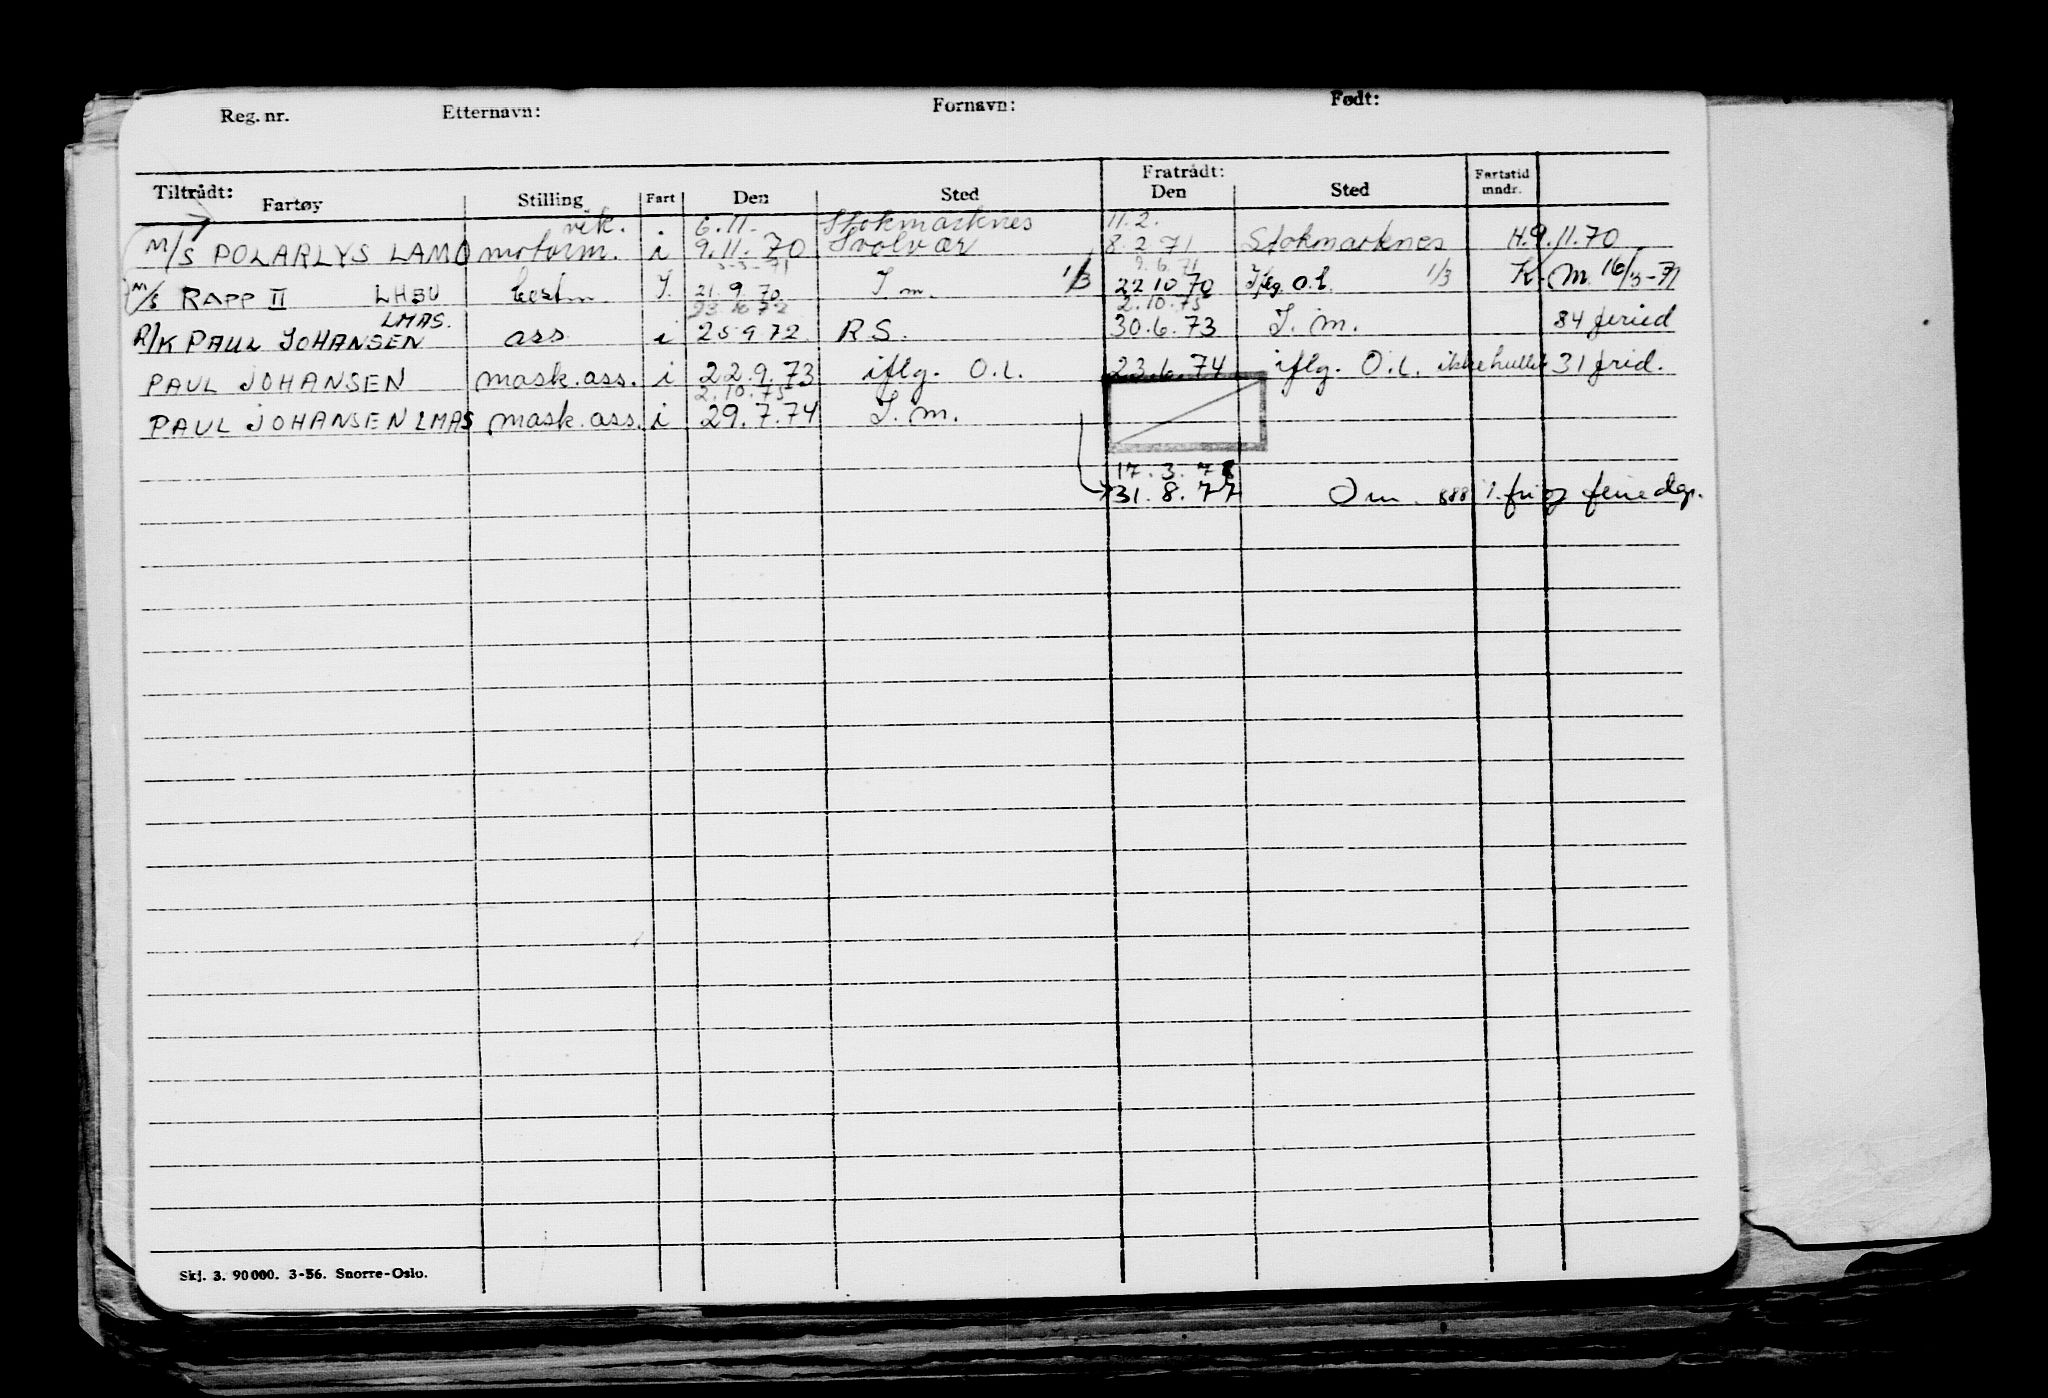 Reg. nr. Etternavn: Fornavn: Født:
Tiltrådt: Fratrådt:
Fartøy Stilling Fart Den Sted Den Sted Fartstid mndr.
vik. 6.11. Stokmarknes 11.2.
M/S POLARLYS LAMO motorm. i 9.11.70 Svolvær 8.2.71 Stokmarknes H.9.11.70
3-3-71 9.6.71
M/S RAPP II LHBU bestm. I. 21.9.70 I m. 1/3 22 10 70 iflg O.L. 1/3 K.M. 16/3-71
LMAS. 2.10.75
R/K PAUL JOHANSEN ass i 25 9 72 R.S. 30.6.73 I. m. 84 feried
PAUL JOHANSEN mask.ass. i 22.9.73 iflg. O.L. 23.6.74 iflg. O.L. ikke hullet 31 frid.
2.10.75
PAUL JOHANSEN LMAS mask.ass. i 29.7.74 I. m.
17.3.78
31.8.77 O m. 888 1. fri og feriedgr.
Skj. 3. 90 000. 3-56. Snorre-Oslo.